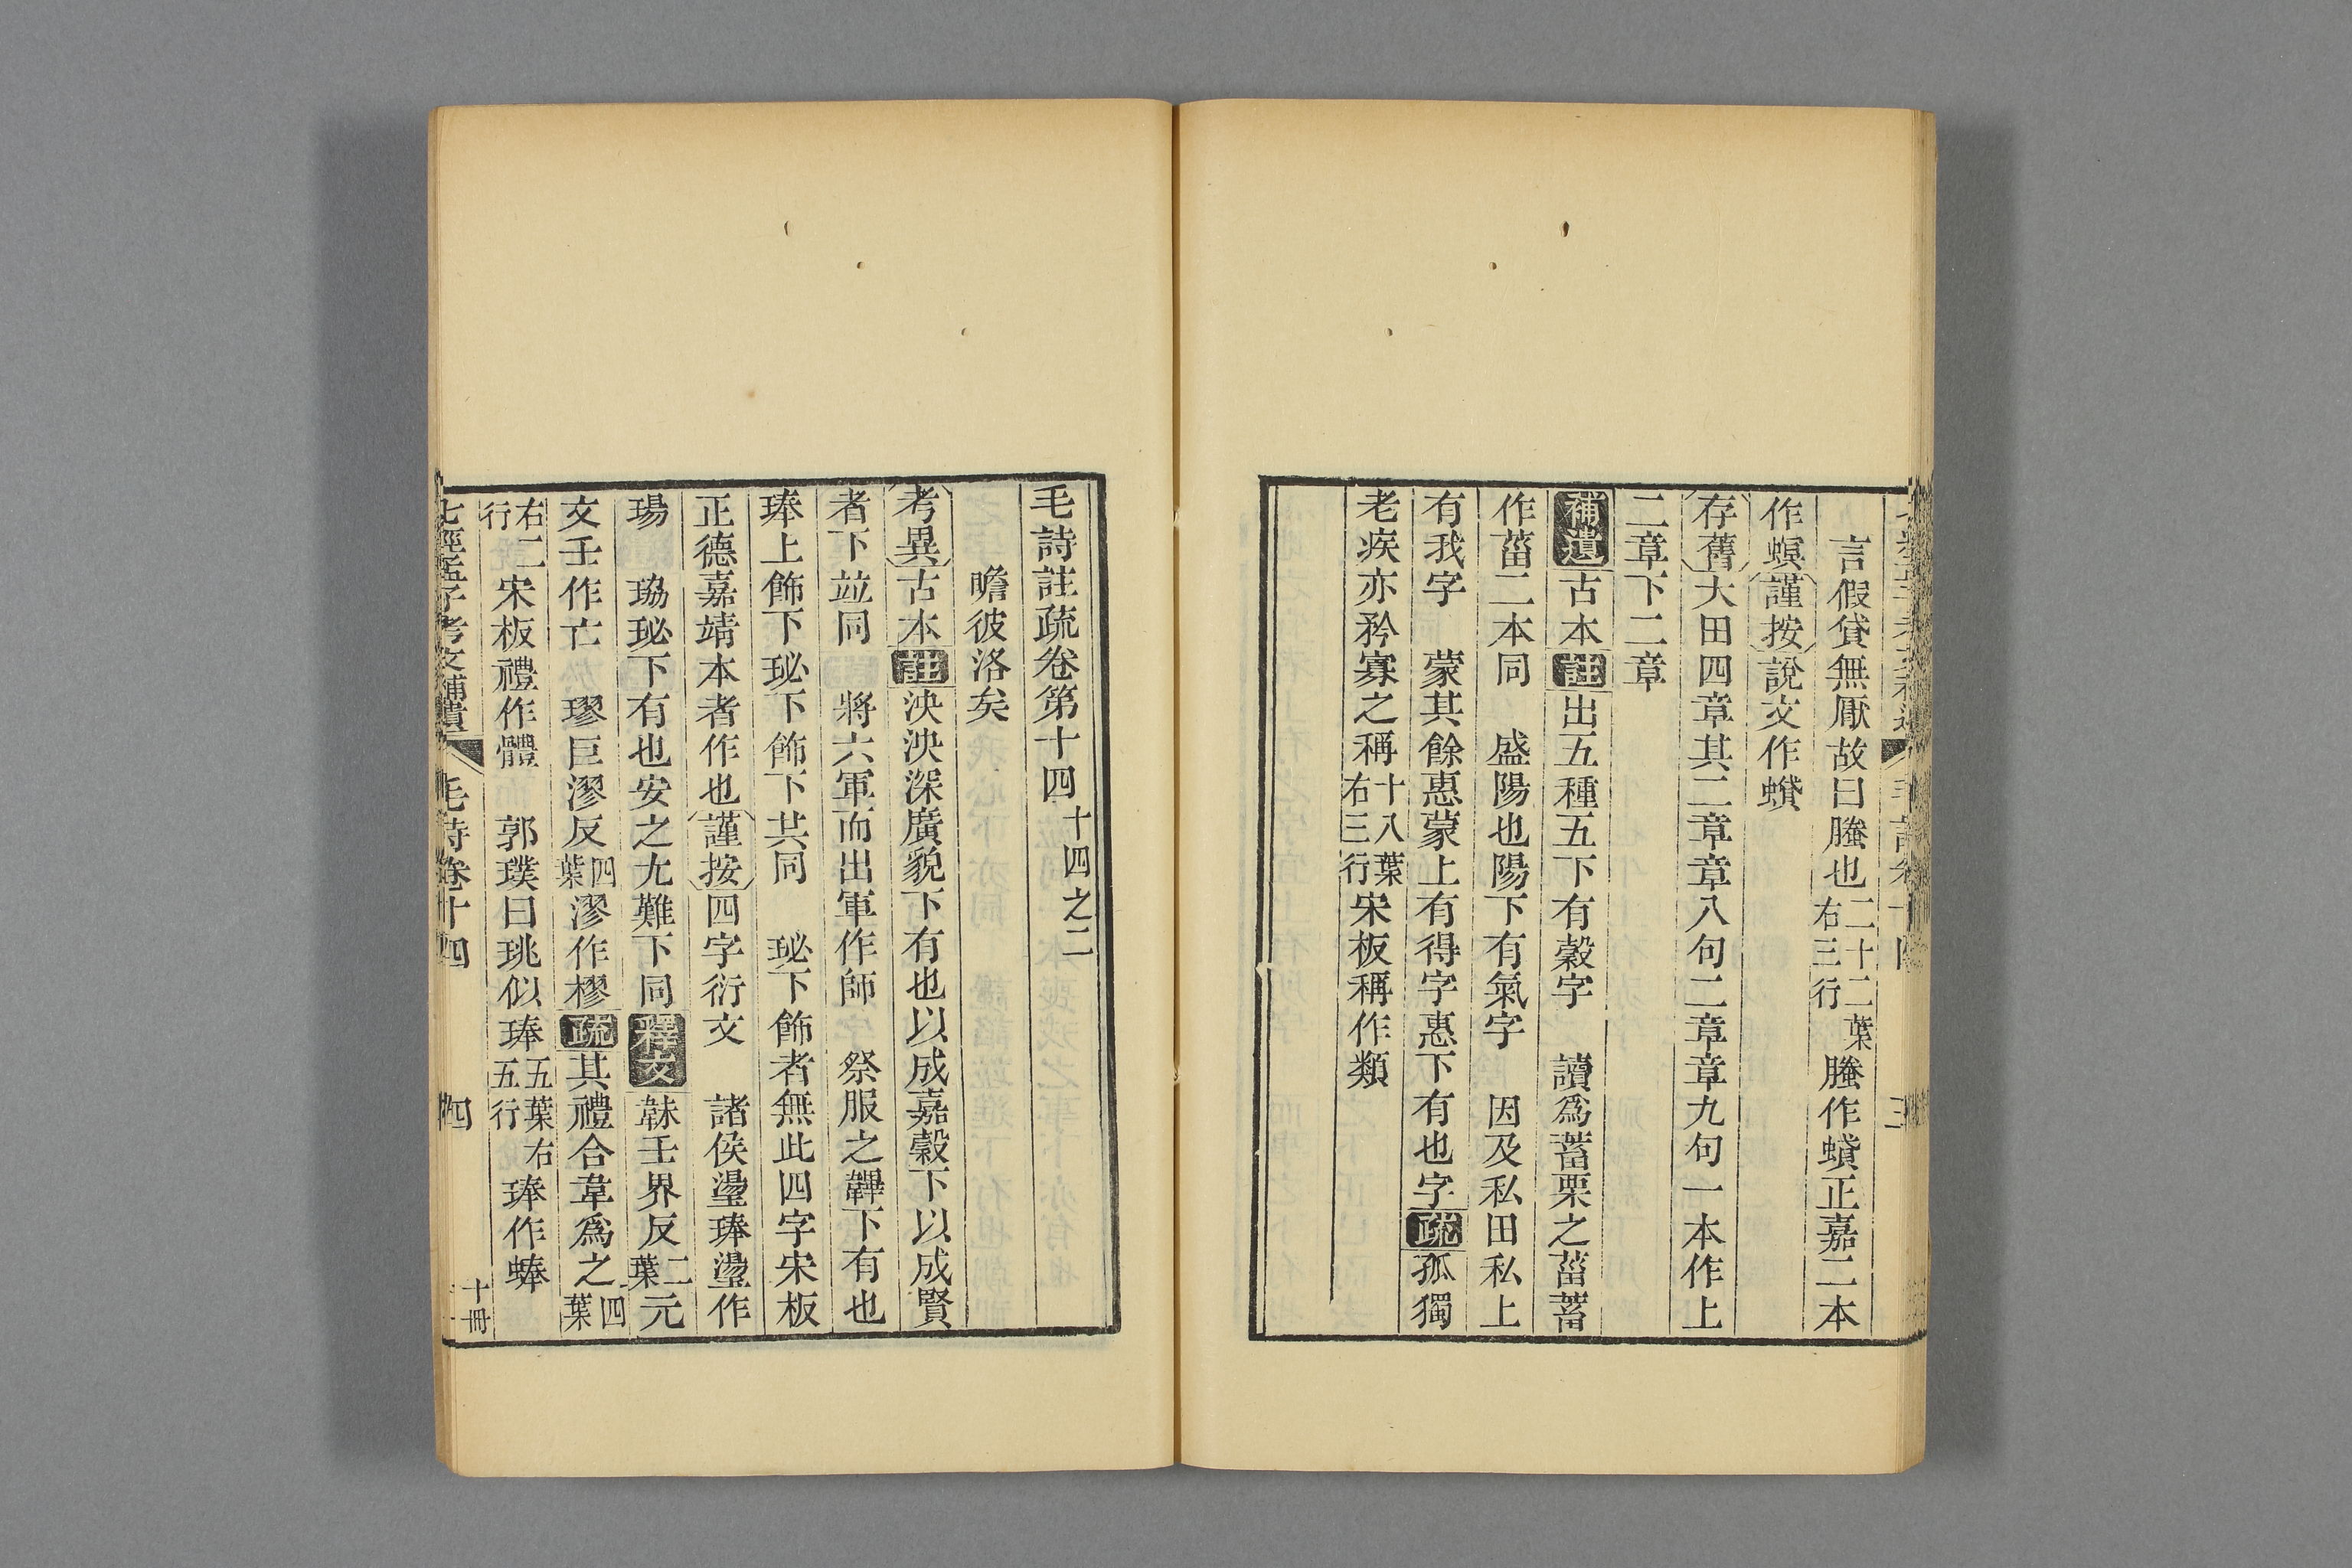 言假貸無厭故曰螣也二十二葉右三行螣作蟘正嘉二本
作螟謹按說文作蟘
存舊大田四章其二章章八句二章章九句一本作上
二章下二章
補遺古本註出五種五下有穀字　讀爲菑栗之菑菑
作菑二本同　盛陽也陽下有氣字　因及私田私上
有我字　蒙其餘惠蒙上有得字惠下有也字疏孤獨
老疾亦矜寡之稱十八葉右三行宋板稱作類
毛詩註疏卷第十四十四之二
瞻彼洛矣
考異古本註泱泱深廣貌下有也以成嘉穀下以成賢
者下竝同　將六軍而出軍作師　祭服之韠下有也
琫上飾下珌下飾下共同　珌下飾者無此四字宋板
正德嘉靖本者作也謹按四字衍文　諸侯璗琫璗作
瑒　珕珌下有也安之尢難下同釋文韎壬界反二葉元
文壬作亡　璆巨漻反四葉漻作樛疏其禮合韋爲之四葉
右二行宋板禮作體　郭璞曰珧似琫五葉右五行琫作蜯
七經孟子考文補遺　毛詩卷十四　四　十冊